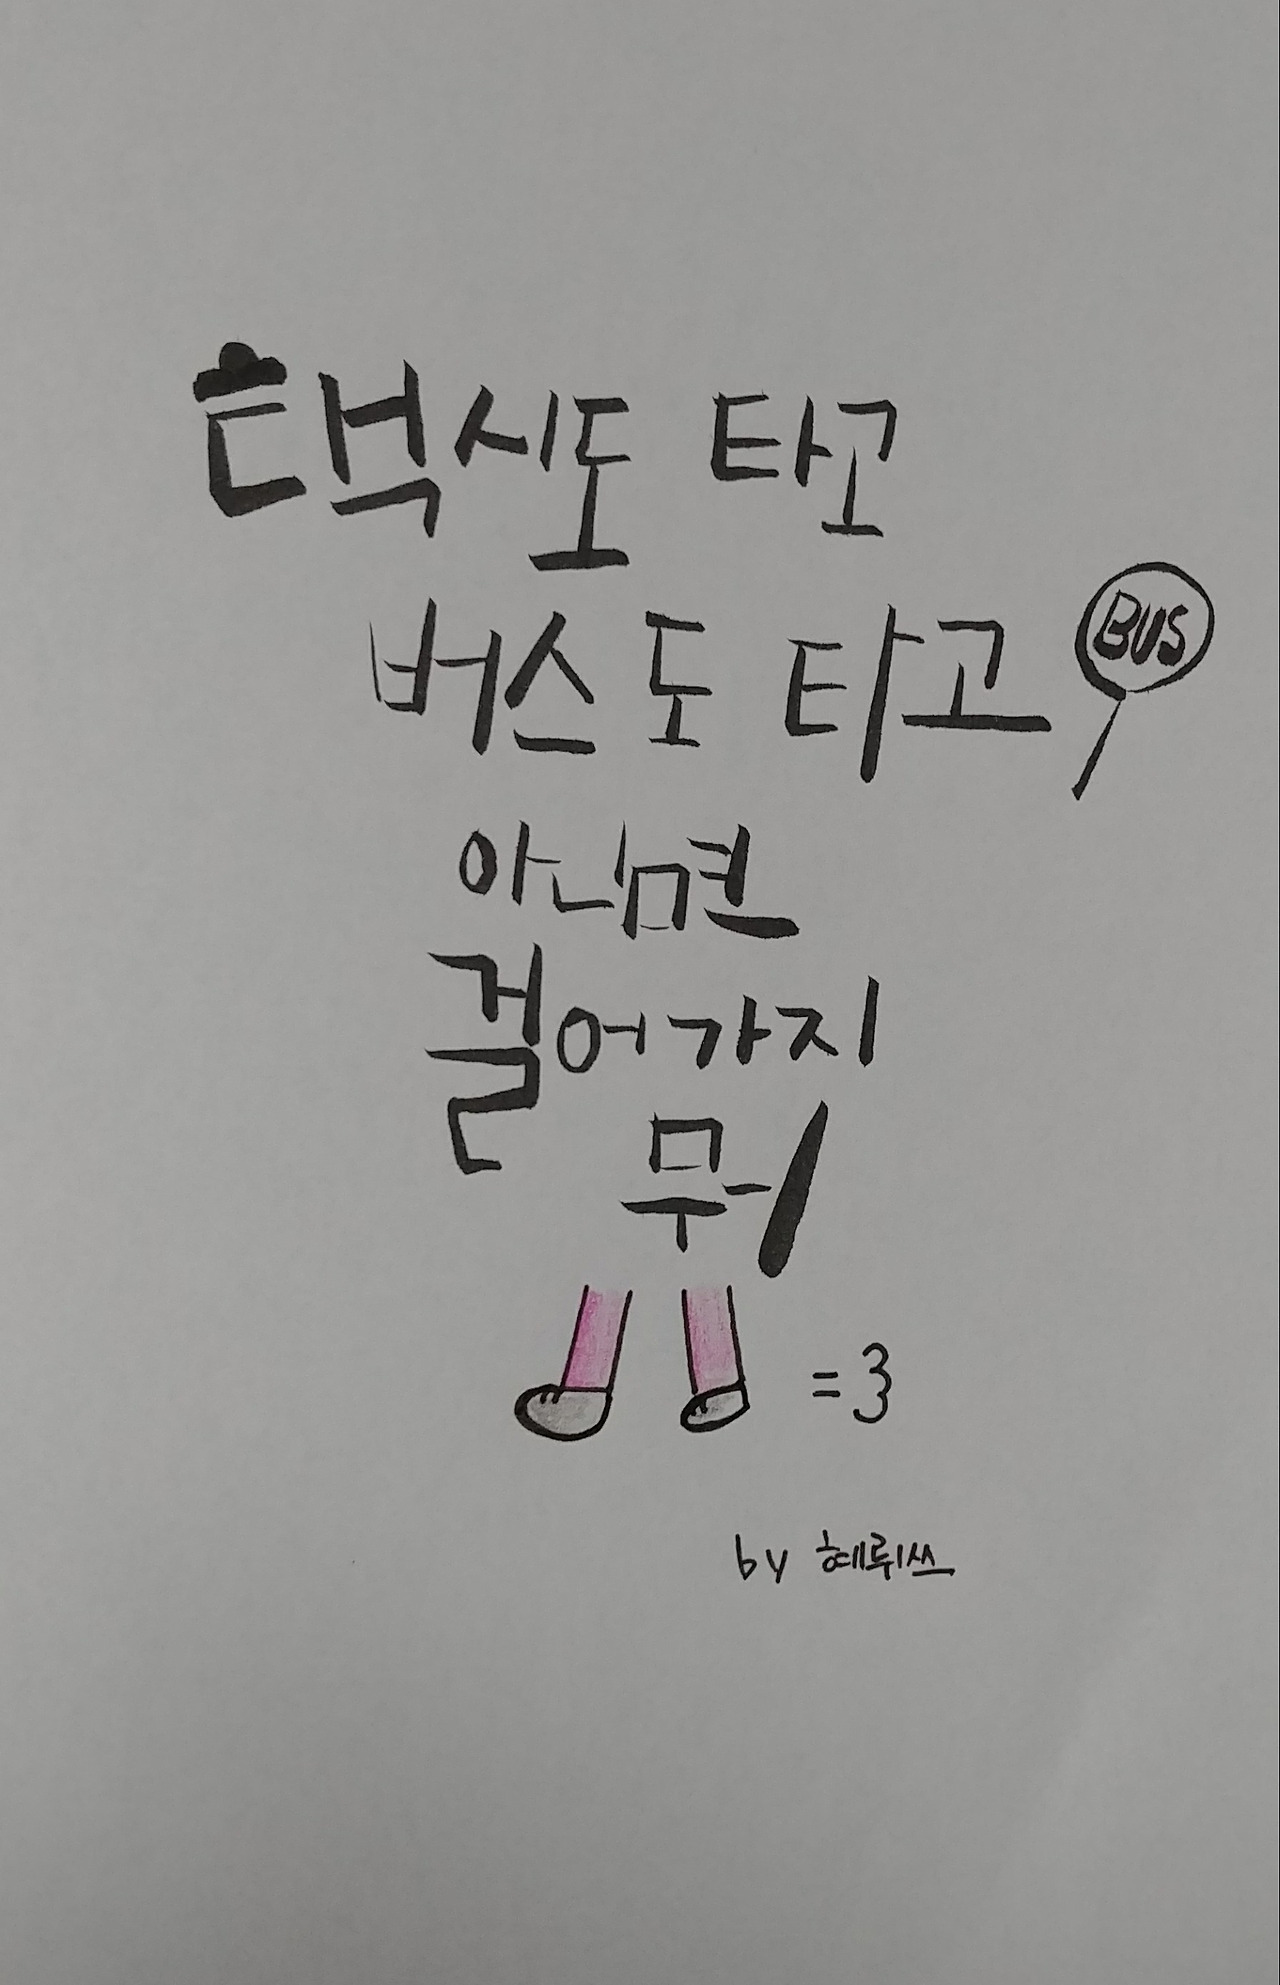 택시도 타고
버스도 타고
BUS
아니면
걸어가지
뭐
=3
by 혜뤼쓰